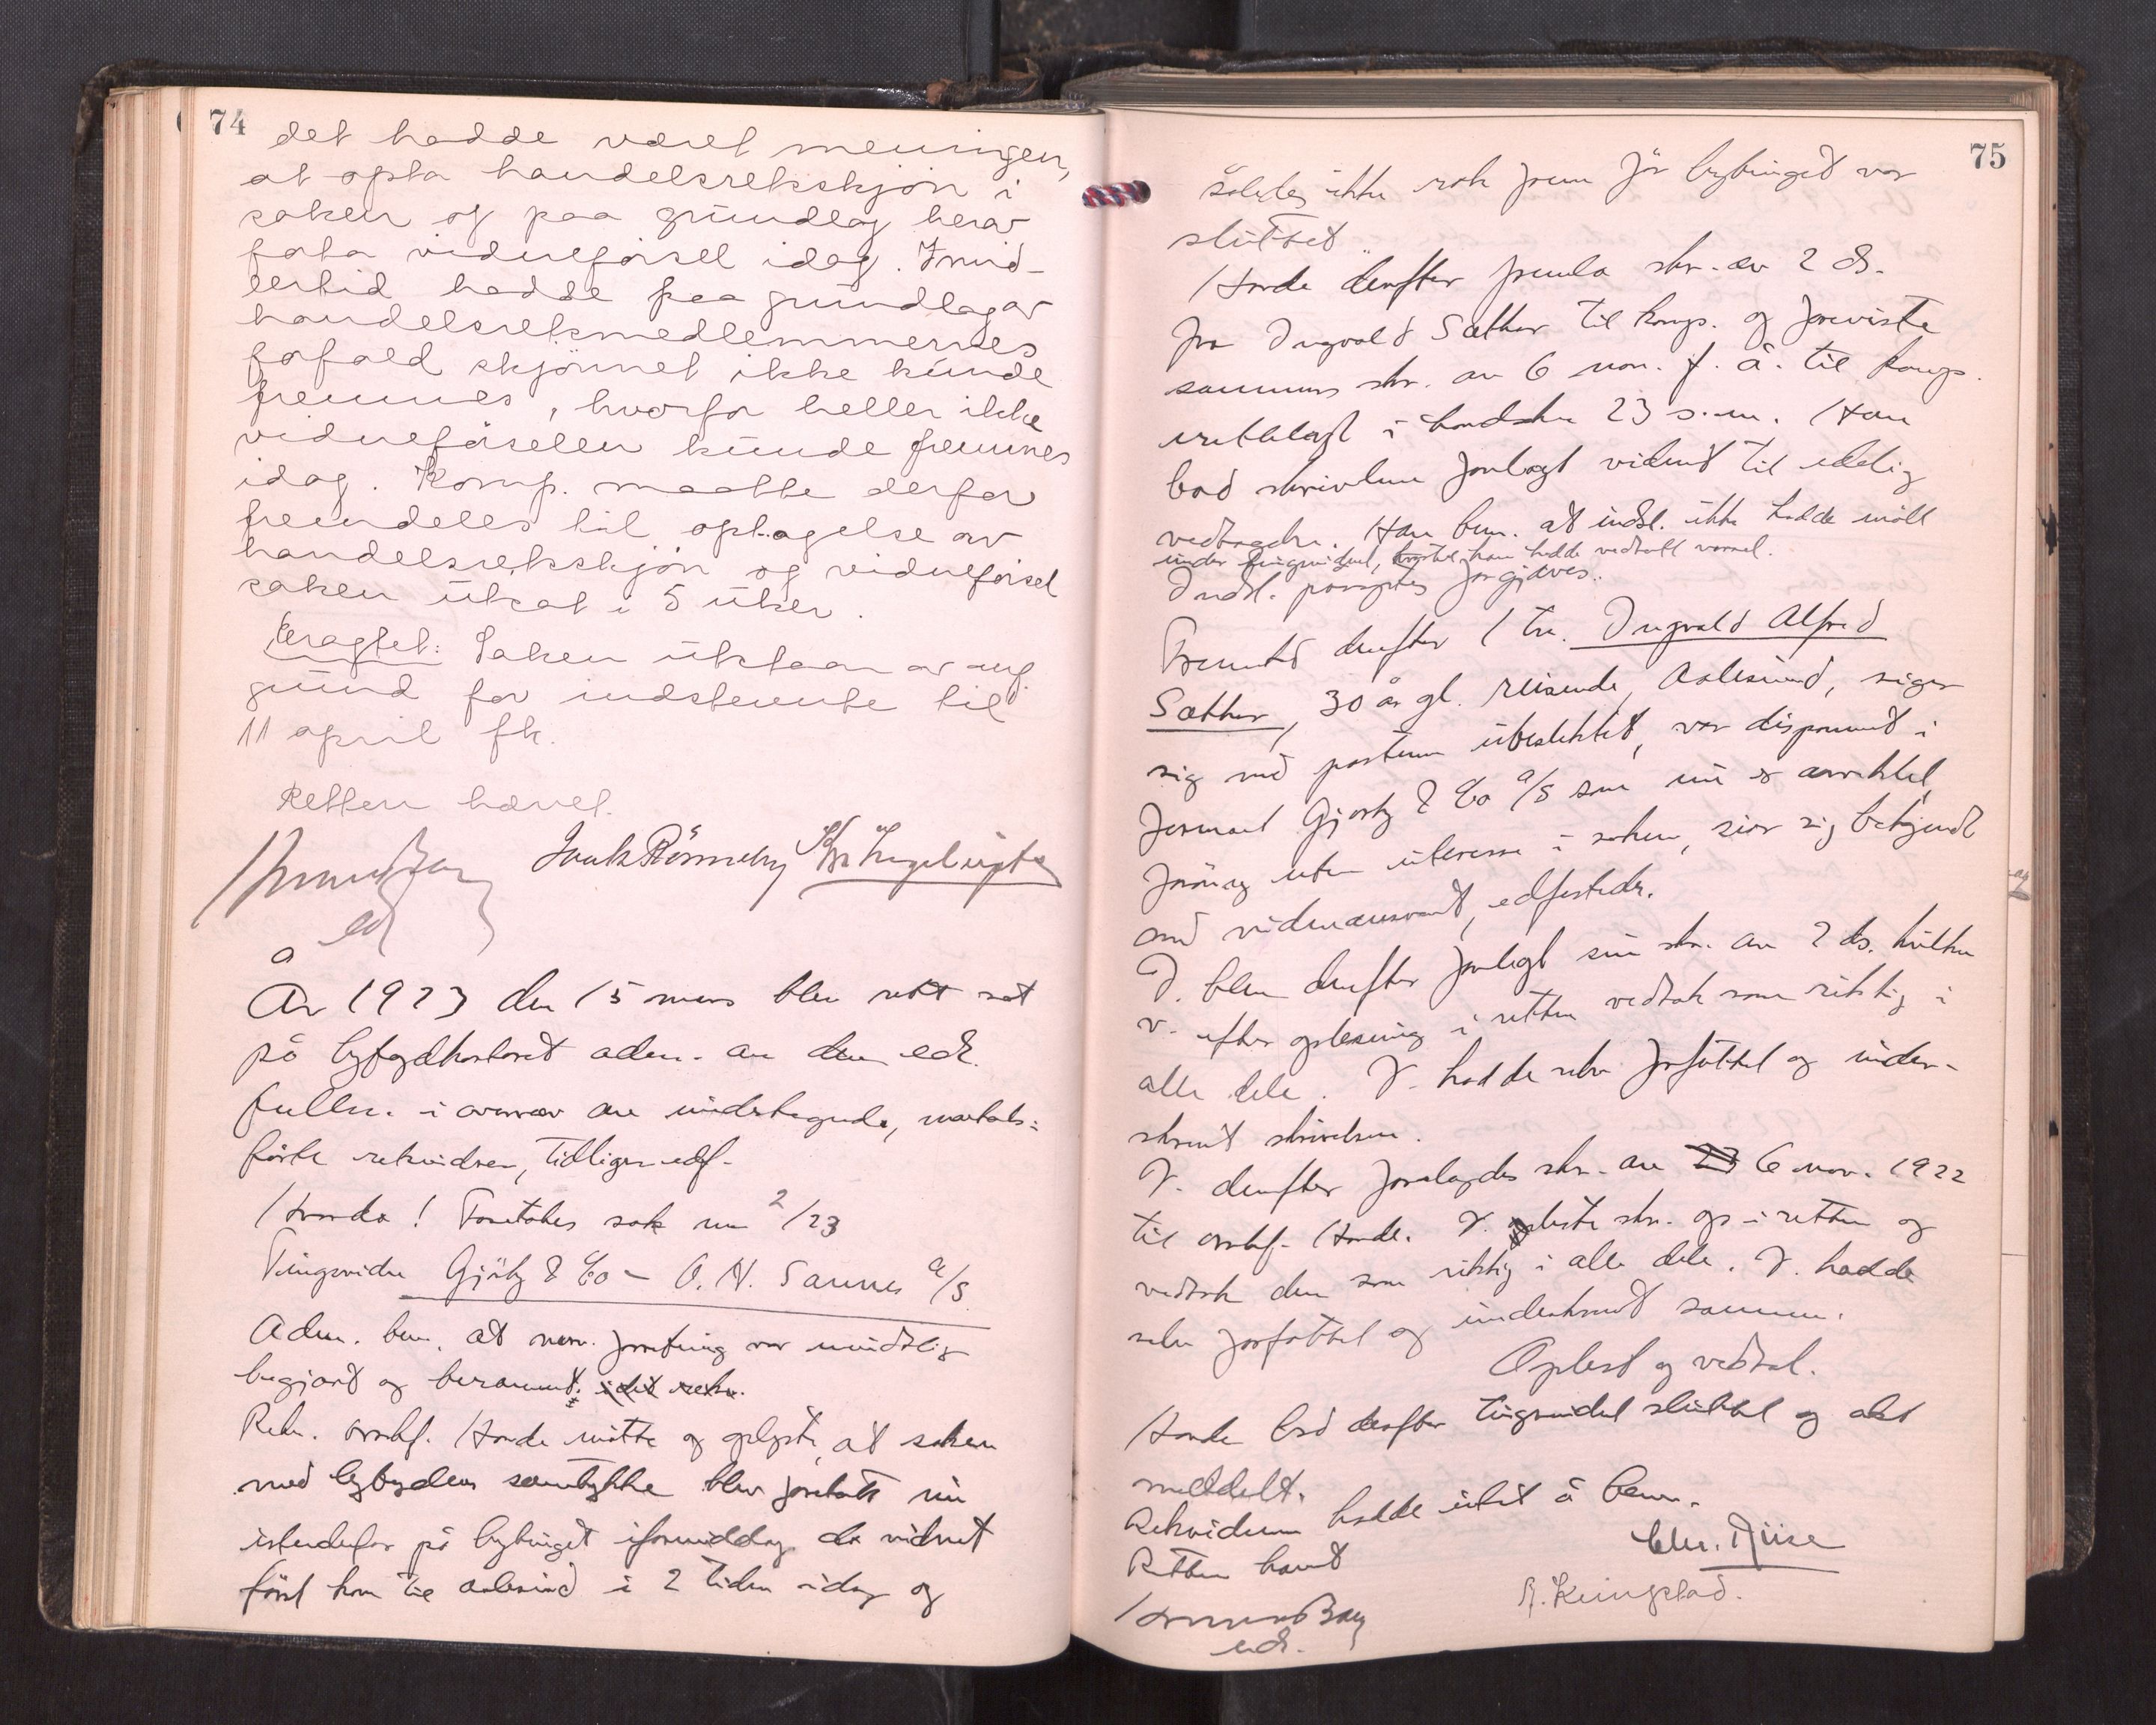 74
det hadde været meningen,
at opta handelsretsskjøn i
saken og paa grundlag herav
foreta vidneførsel idag. Imid-
lertid hadde paa grundlag av
handelsretsmedlemmernes
forfald skjønnet ikke kunde
fremmes, hvorfor heller ikke
vidneførselen kunde fremmes
idag. Komp. maatte derfor
fremdeles til optagelse av
handelsretsskjøn og vidneførsel
saken utsat i 5 uker.
Eragtet: Saken utstaar av anf.
grund for indstevnte til
11 april fk.
Retten hævet.
År 1923 den 15 mars blev rett sat
på byfogdkontoret adm. av den edf.
fullm. i overvær av undertegnede, mandtals-
førte rettsvidner, tidligere edf.
Hvorda! Foretokes sak nr 2/23
Tingsvidne Gjørtz & Co - O. N. Sannes A/S
Adm. bem. at nærv. forretning var mundtlig
begjært og berammet.
Rekv. overrf. Hovde møtte og oplyste, at saken
med byfogdens samtykke blev foretatt nu
istedetfor på bytinget iformiddag da vidnet
først kom til Aalesund i 2 tiden idag og
75
således ikke rak frem før bytinget var
sluttet.
Hovde derefter fremla skr. av 2 ds.
fra Ingvald Sæther til komp. og foreviste
sammes skr. av 6 nov. f. å. til komp.
irettelagt i hovedskr 23 s.m. Han
bad skrivelsene forelagt vidnet til edelig
vedtagelse. Han bem. at indst. ikke hadde møtt
under tingsvidnet, han hadde vedtatt varsel.
Indst. påroptes forgjæves.
Fremstod derefter 1 tn. Ingvald Alfred
Sæther, 30 år gl. reisende, Aalesund, siger
sig med partene ubeslektet, var disponent i
formaet Gjørtz & Co A/S som nu er avviklet,
forøvrig uten interesse i saken, sier sig bekjendt
med vidneansvaret, edfestedes.
V. blev derefter forelagt sin skr. av 2 ds. hvilken
v. efter oplesning i retten vedtok som riktig i
alle dele. V. hadde selv forfattet og under-
skrevet skrivelsen.
V. derefter forelagdes skr. av 6 nov. 1922
til overrf. Hovde. V. oplæste skr. op i retten og
vedtok den som riktig i alle dele. V. hadde
selv forfattet og underskrevet samme.
Oplest og vedtat.
Hovde bad derefter tingsvidnet sluttet og akt
meddelt.
Rekvidnene hadde intet å bem.
Retten hævet
Chr. Riise
R. Ringstad.